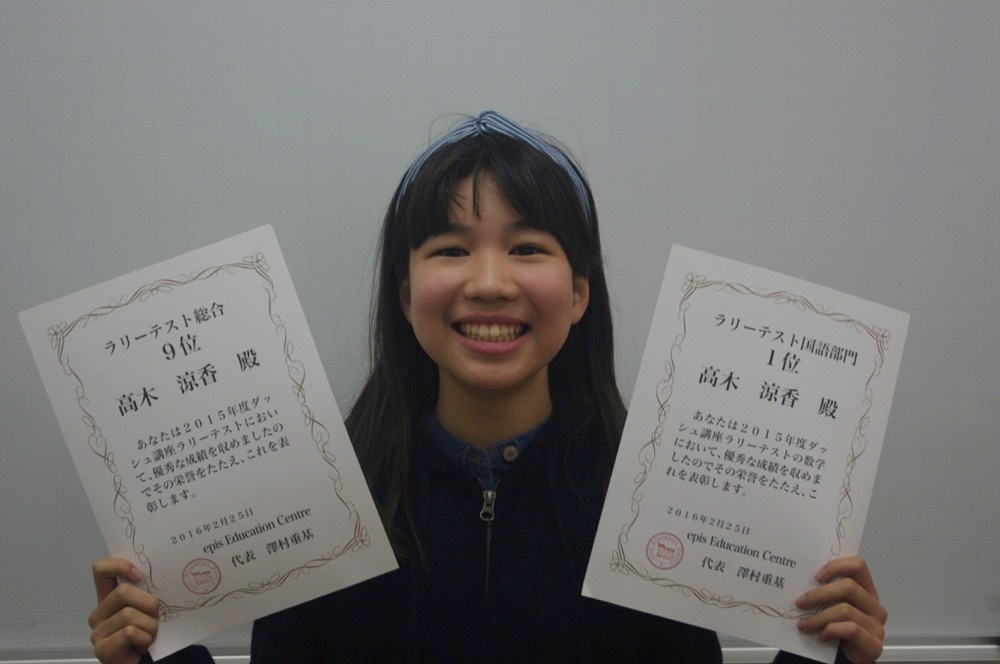 ラリーテスト総合
9位
高木 涼香 殿
あなたは2015年度ダッ
シュ講座ラリーテストにおい
て、優秀な成績を収めましたの
でその栄誉をたたえ、これを表
彰します。
2016年2月25日
epis Education Centre
代表 澤村重基
ラリーテスト国語部門
1位
高木 涼香 殿
あなたは2015年度ダッ
シュ講座ラリーテストの数学
において、優秀な成績を収めま
したのでその栄誉をたたえ、こ
れを表彰します。
2016年2月25日
epis Education Centre
代表 澤村重基